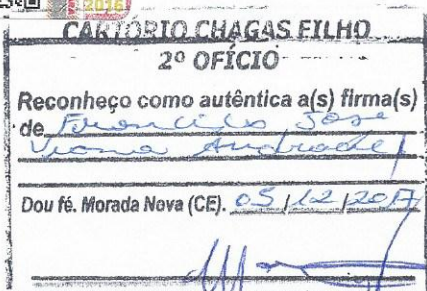 2016
CARTÓRIO CHAGAS FILHO
2º OFÍCIO
Reconheço como autêntica a(s) firma(s)
de Francisco José
Viana Andrade
Dou fé. Morada Nova (CE). 05/12/2017